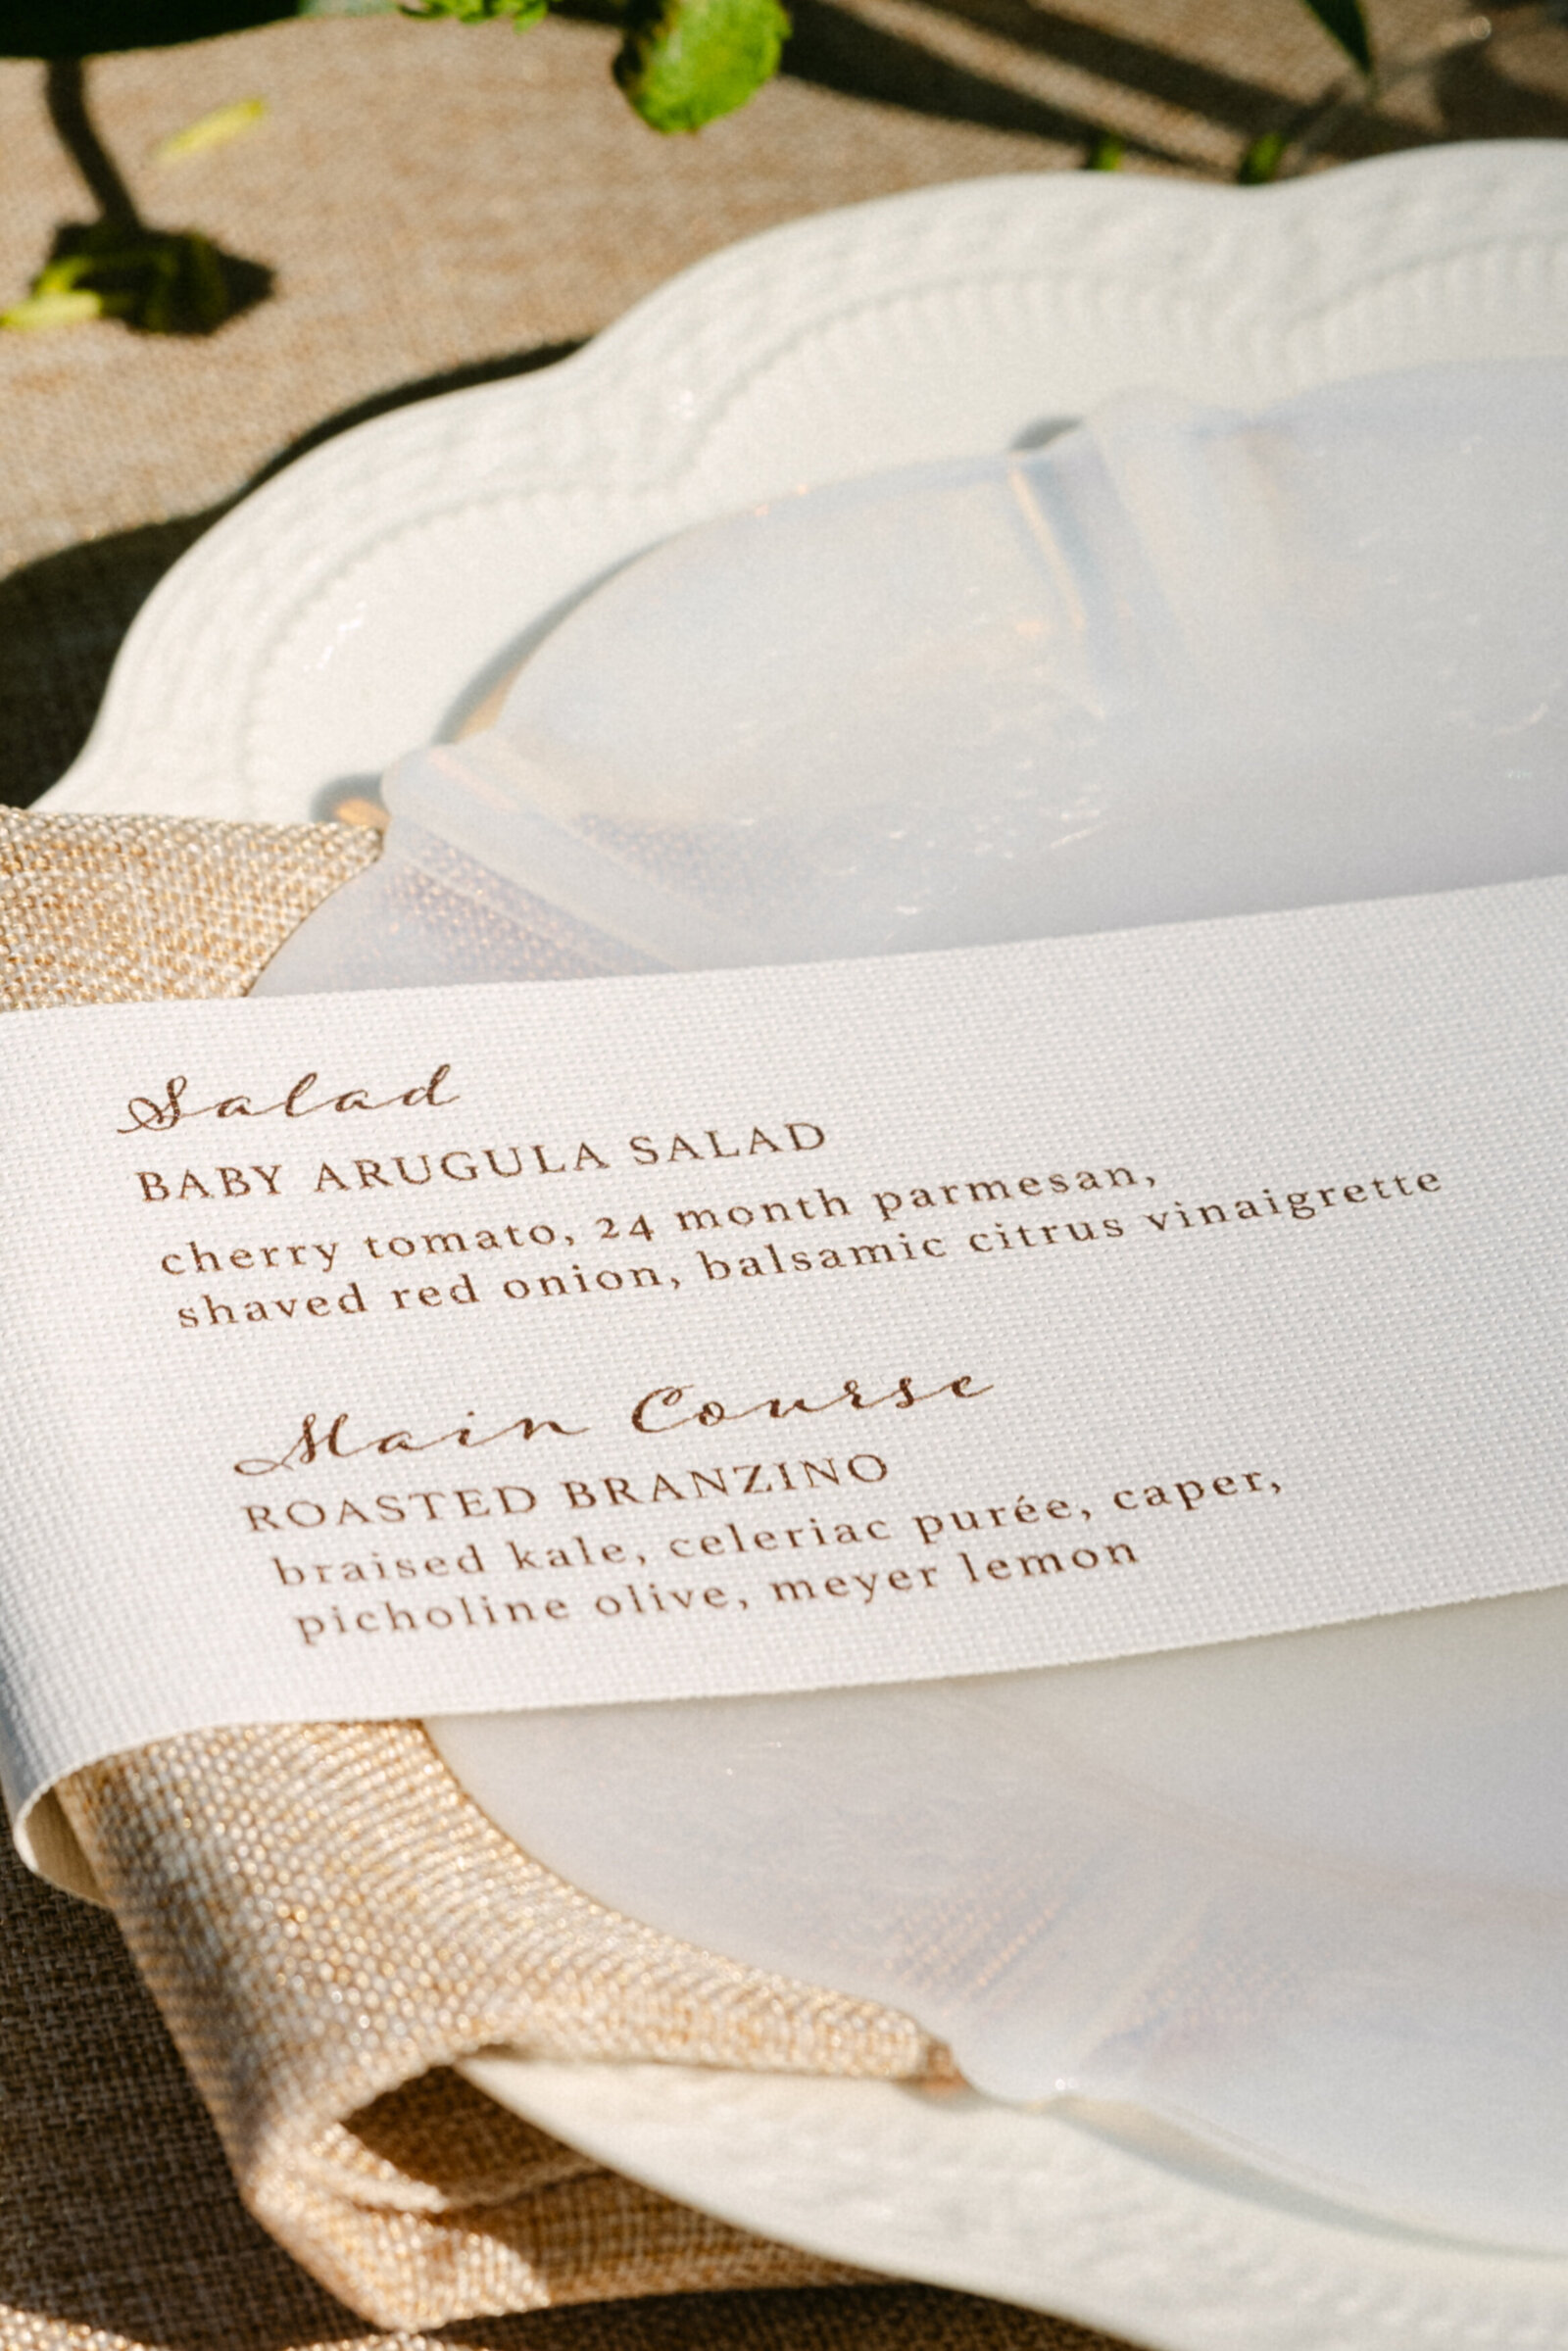 Salad
BABY ARUGULA SALAD
cherry tomato, 24 month parmesan,
shaved red onion, balsamic citrus vinaigrette
Main Course
ROASTED BRANZINO
braised kale, celeriac purée, caper,
picholine olive, meyer lemon